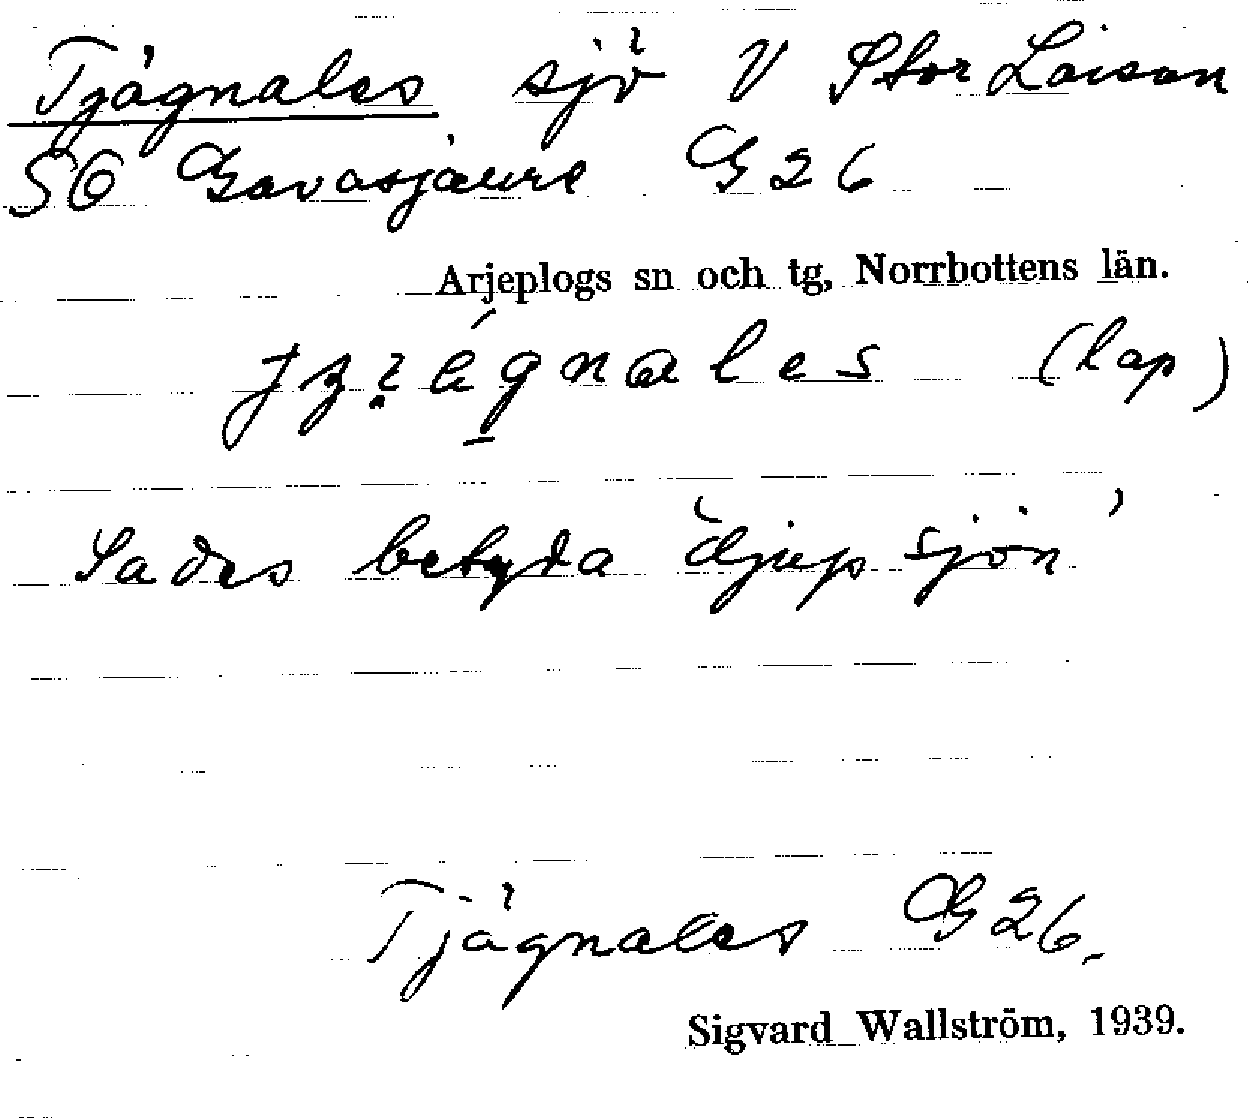 Tjägnales sjö V Stor Laisan
SO Gavasjaure G 26
Arjeplogs sn och tg, Norrbottens län.
(lap)
Sades betyda 'djup sjön'
Tjägnales G 26.
Sigvard Wallström, 1939.